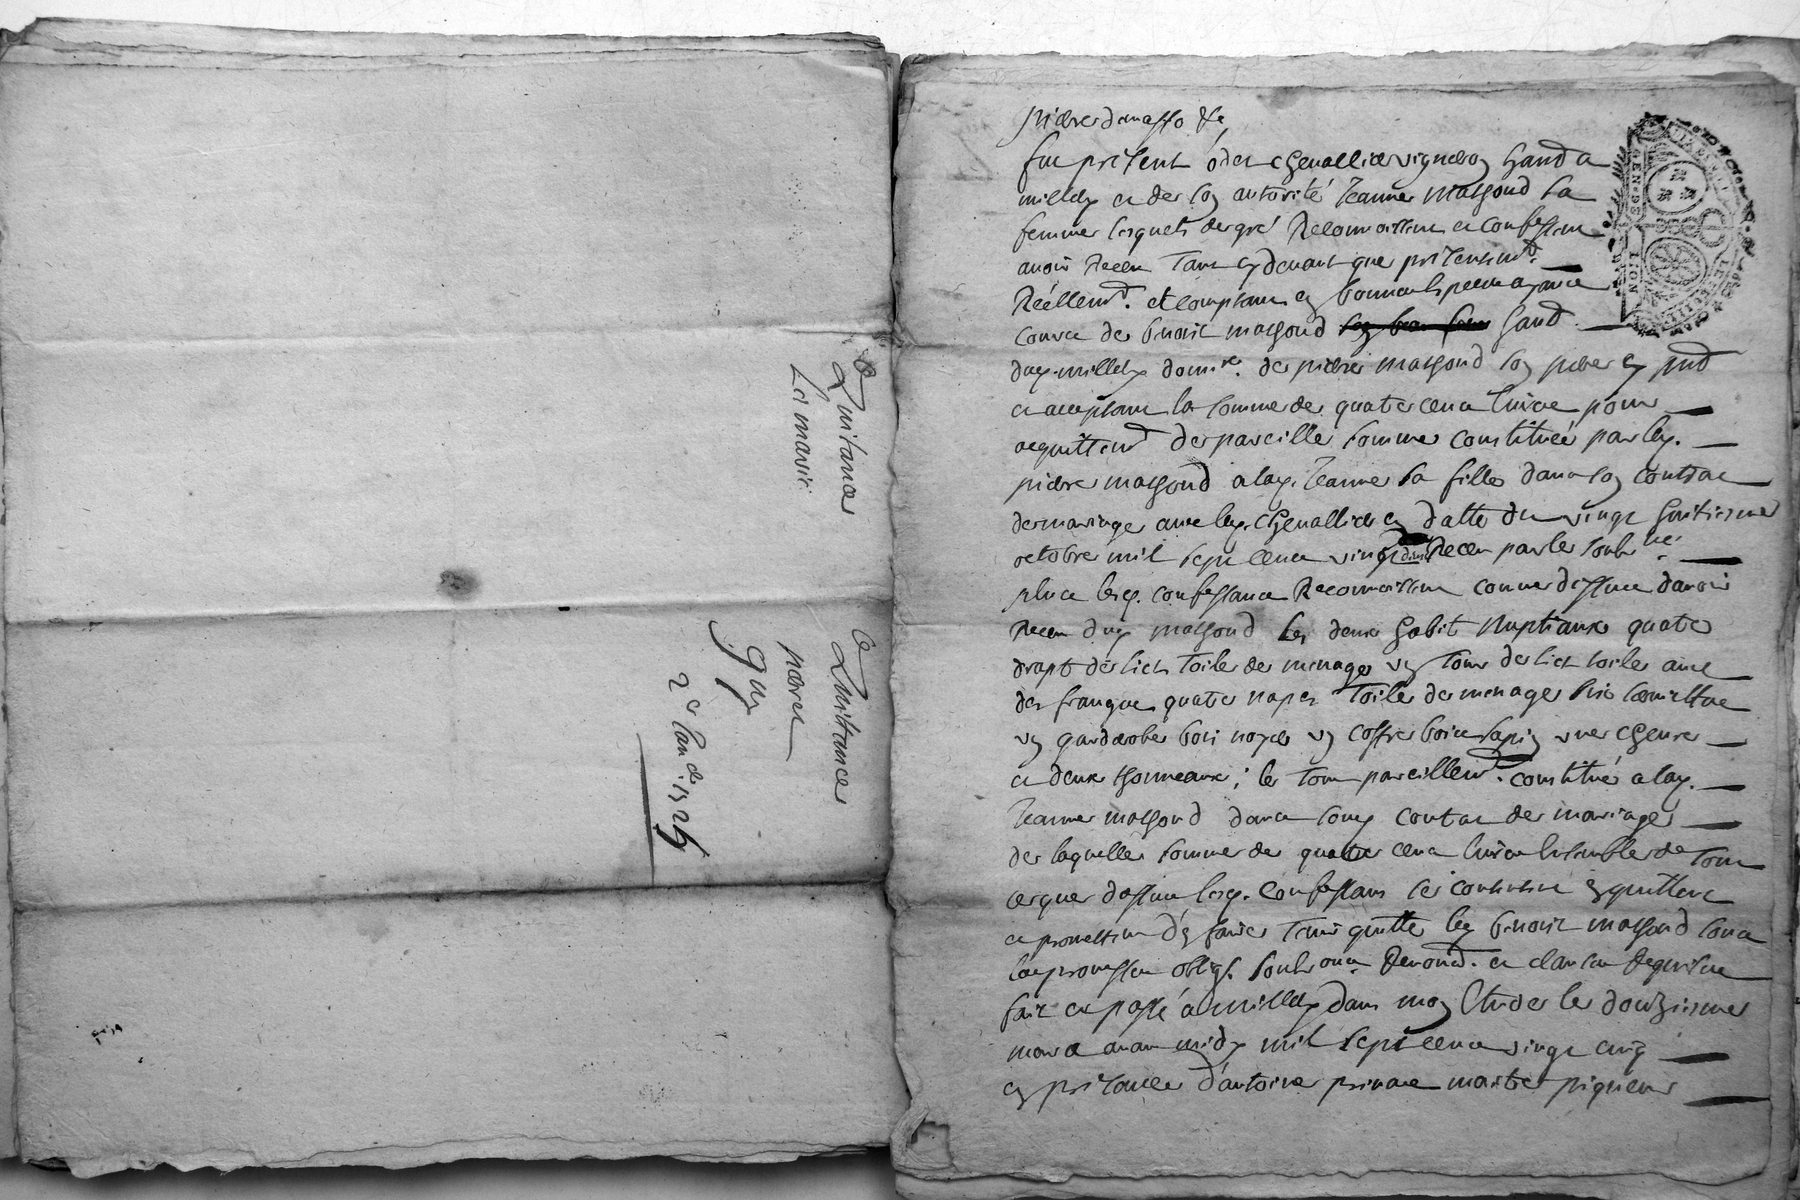 Quitance
Les mariés
Quittance
2e land. 1725
fut présent chevallier vigneron habt a
millery et de son autorité Jeanne massond sa
femme lesquels de gré Reconnoissent et confessent
avoir Receu tant cy devant que présentemt.
Réellemt. et comptant en bonnes especes ayant
cours de benoit massond habt.
dud. millery donnre. de pierre massond son pere cy pnt
et acceptant la somme de quatre cent livres pour
acquittemt de pareille somme constituée par led.
pierre massond a lad. Jeanne sa fille dans son contrac
de mariage avec led. chevallier en datte du vingt huitieme
octobre mil sept cent vingt Receu par le soubne.
plus lesd. confessants Reconnoissent comme dessus davoir
Receu dud. massond les deux habit nuptiaux quatre
drapt de lict toile de menage un tour de lict toile avec
des frange quatre napes toile de menage six serviettes
un garderobe bois noyer un coffre bois sapin une chevre
et deux thonneaux; le tout pareillemt. constitué a lad.
Jeanne massond dans sond. contrac de mariage
de laquelle somme de quatre cent livres ensemble de tout
ceque dessus lesd. confessants se contentent en quittent
et promettent d'en faire tenir quitte led. benoit massond sous
les promesses oblig. renond. et clauses Requises
fait et passé a millery dans mon Etude le douzieme
mars avant midy mil sept cent vingt cinq
en présence d'antoine maitre piqueur
GEN. DE LION